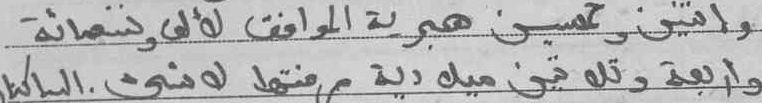 واثنين وخمسين هجرية الموافق لألف وتسعمائة
وأربعة وثلاثين ميلادية م منتهى لا منسى. الساكنان